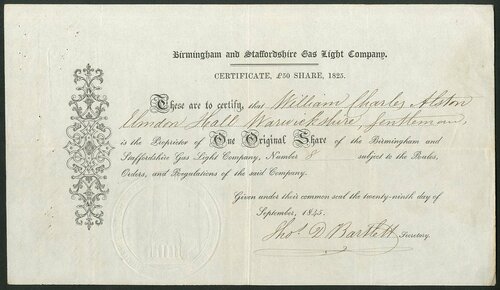 Birmingham and Staffordshire Gas Light Company.
CERTIFICATE, £50 SHARE, 1825.
These are to certify, that William Charles Alston
Elmdon Hall Warwickshire, Gentleman,
is the Proprietor of One Original Share of the Birmingham and
Staffordshire Gas Light Company, Number 8 subject to the Rules,
Orders, and Regulations of the said Company.
Given under their common seal the twenty-ninth day of
September, 1845.
Thos. D. Bartlett Secretary.